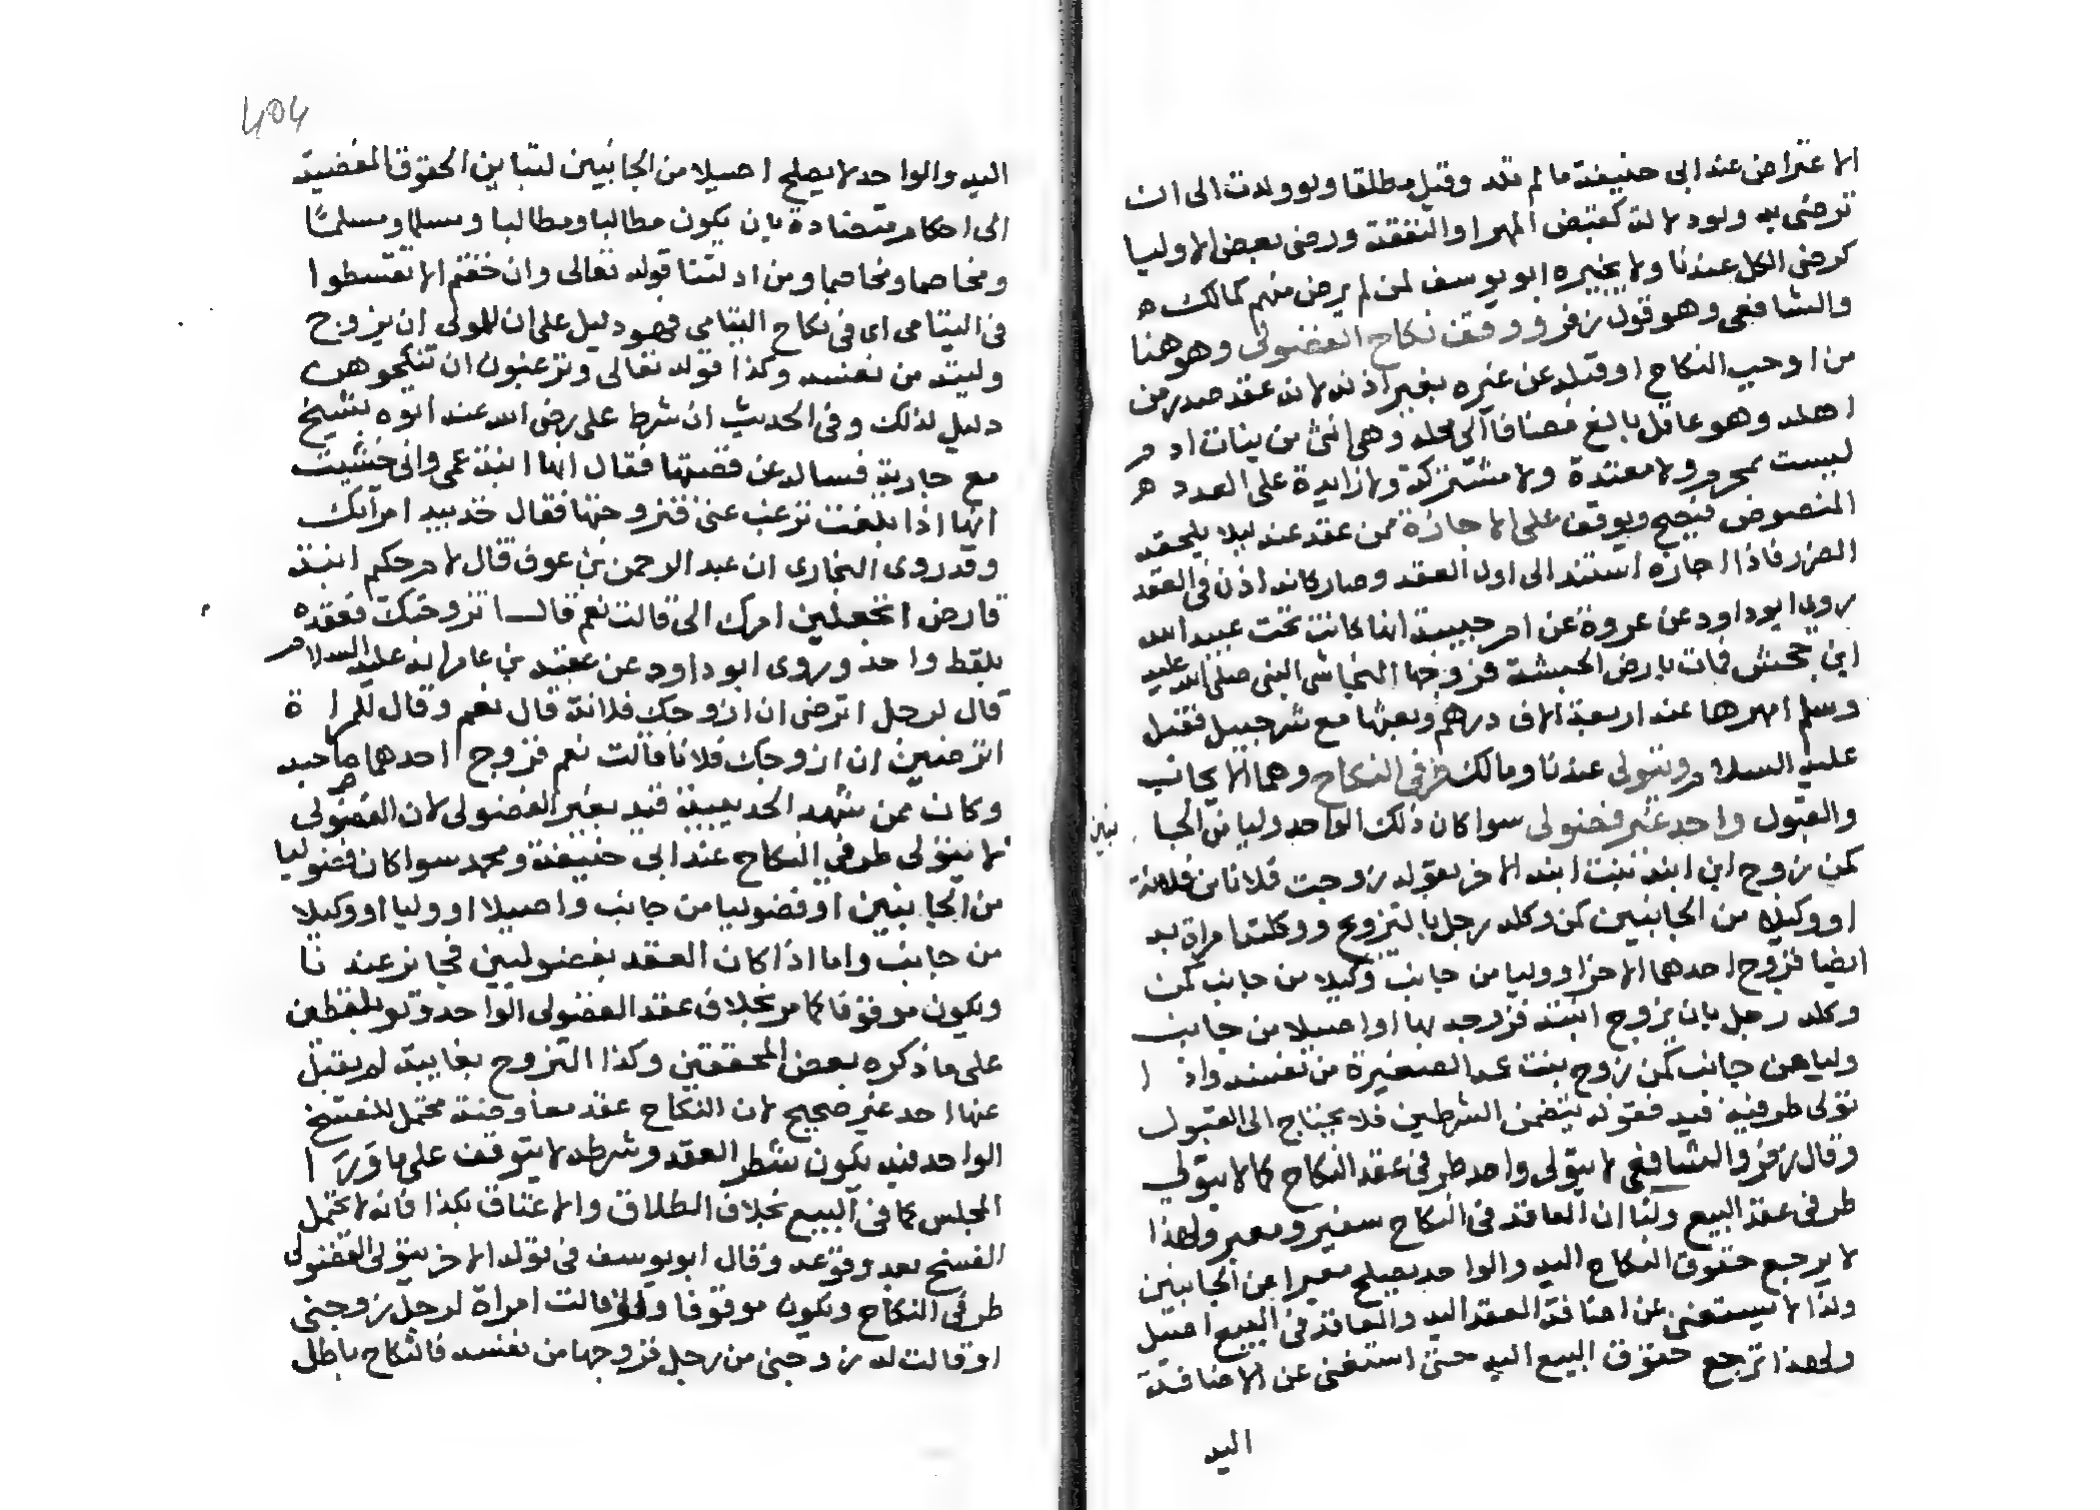 الاعتراض عند ابى حنيفة ما لم تلد وقيل مطلقا ولو ولدت الى ان
ترضى به ولود لالة كقبض المهر او النفقة ورضى بعض الاوليا
كرضى الكل عندنا ولا يخيره ابو يوسف لمن لم يرض منهم كمالك ه
والشافعى وهو قول زفر ووقف نكاح الفضولى وهو هنا
من اوجب النكاح او قبله عن غيره بغير اذنه لانه عقد صدر من
اهله وهو عاقل بالغ مضافا الى محله وهى انثى من بنات ادم
ليست بمحرم ولا معتدة ولا مشتركة ولا زايدة على العدد ه
المنصوص فيصح ويوقف على الاجازة ممن عقد عنه ليلا يلحقه
الضرر فاذا اجازه استند الى اول العقد وصار كانه اذن فى العقد
روى ابو داود عن عروة عن ام حبيبة انها كانت تحت عبيد الله
ابن جحش فمات بارض الحبشة فزوجها النجاشى النبى صلى الله عليه
وسلم امهرها عنه اربعة الاف درهم وبعثها مع شرحبيل فقبل
عليه السلام ويتولى عندنا ومالك طرفى النكاح وهما الايجاب
والقبول واحد غير فضولى سوا كان ذلك الواحد وليا من الجا نبين
كمن زوج ابن ابنه بنت ابنه الاخر بقوله زوجت فلانا من فلانة
او وكيله من الجانبين كمن وكله رجل بالتزويج ووكلته امراة به
ايضا فزوج احدهما الاخر او وليا من جانب وكيلا من جانب كمن
وكله رجل بان يزوج ابنته فزوجه بها او اصيلا من جانب
وليا من جانب كمن زوج بنت عمه الصغيرة من نفسه واذ ا
تولى طرفيه فيه فقوله يتضمن الشرطين فلا يحتاج الى القبول
وقال زفر والشافعى لا يتولى واحد طرفى عقد النكاح كما لا يتولى
طرفى عقد البيع ولنا ان العاقد فى النكاح سفير ومعبر ولهذا
لا يرجع حقوق النكاح اليه والواحد يصلح معبرا عن الجانبين
ولذا لا يستغنى عن اضافة العقد اليه والعاقد فى البيع اصيل
ولهذا ترجع حقوق البيع اليه حتى استغنى عن الاضافة
اليه
404
اليه والواحد لا يصلح اصيلا من الجانبين لتباين الحقوق المفضية
الى احكام متضادة بان يكون مطالبا ومطالبا ومسلما ومسلمًا
ومخاصما ومخاصما ومن ادلتنا قوله تعالى وان خفتم الا تقسطوا
فى اليتامى اى فى نكاح اليتامى فهو دليل على ان للمولى ان يزوج
وليته من نفسه وكذا قوله تعالى وترغبون ان تنكحوهن
دليل لذلك وفى الحديث ان شرط على رضى الله عنه اتوه بشيخ
مع جارية فساله عن قضتها فقال انها ابنة عمى وانى خشيت
انها اذا بلغت ترغب عنى فتزوجتها فقال خذ بيد امرأتك
وقد روى البخارى ان عبد الرحمن بن عوف قال لام حكم ابنة
قارض اتجعلين امرك الى قالت نعم قال تزوجتك فعقده
بلفظ واحد وروى ابو داود عن عقبة بن عامر انه عليه السلام
قال لرجل اترضى ان ازوجك فلانة قال نعم وقال للمراة
اترضين ان ازوجك فلانا قالت نعم فزوج احدهما صاحبه
وكان ممن شهد الحديبية قيد بغير الفضولى لان الفضولى
لا يتولى طرفى النكاح عند ابى حنيفة ومحمد سوا كان فضوليا
من الجانبين او فضوليا من جانب واصيلا او وليا او وكيلا
من جانب واما اذا كان العقد بفضوليين فجايز عند نا
ويكون موقوفا كما مر بخلاف عقد الفضولى الواحد ولو بلفظين
على ما ذكره بعض المحققين وكذا التزوج بغايبة لم يقبل
عنها احد غير صحيح لان النكاح عقد معاوضة محتمل للفسخ
الواحد فيه يكون شطر العقد وشرطه لا يتوقف على ما ورا
المجلس كما فى البيع بخلاف الطلاق والاعتاق بكذا فانه لا يحتمل
الفسخ بعد وقوعه وقال ابو يوسف فى قوله الاخر يتولى الفضولى
طرفى النكاح ويكون موقوفا ولو قالت امراة لرجل زوجنى
او قالت له زوجنى من رجل فزوجها من نفسه فالنكاح باطل